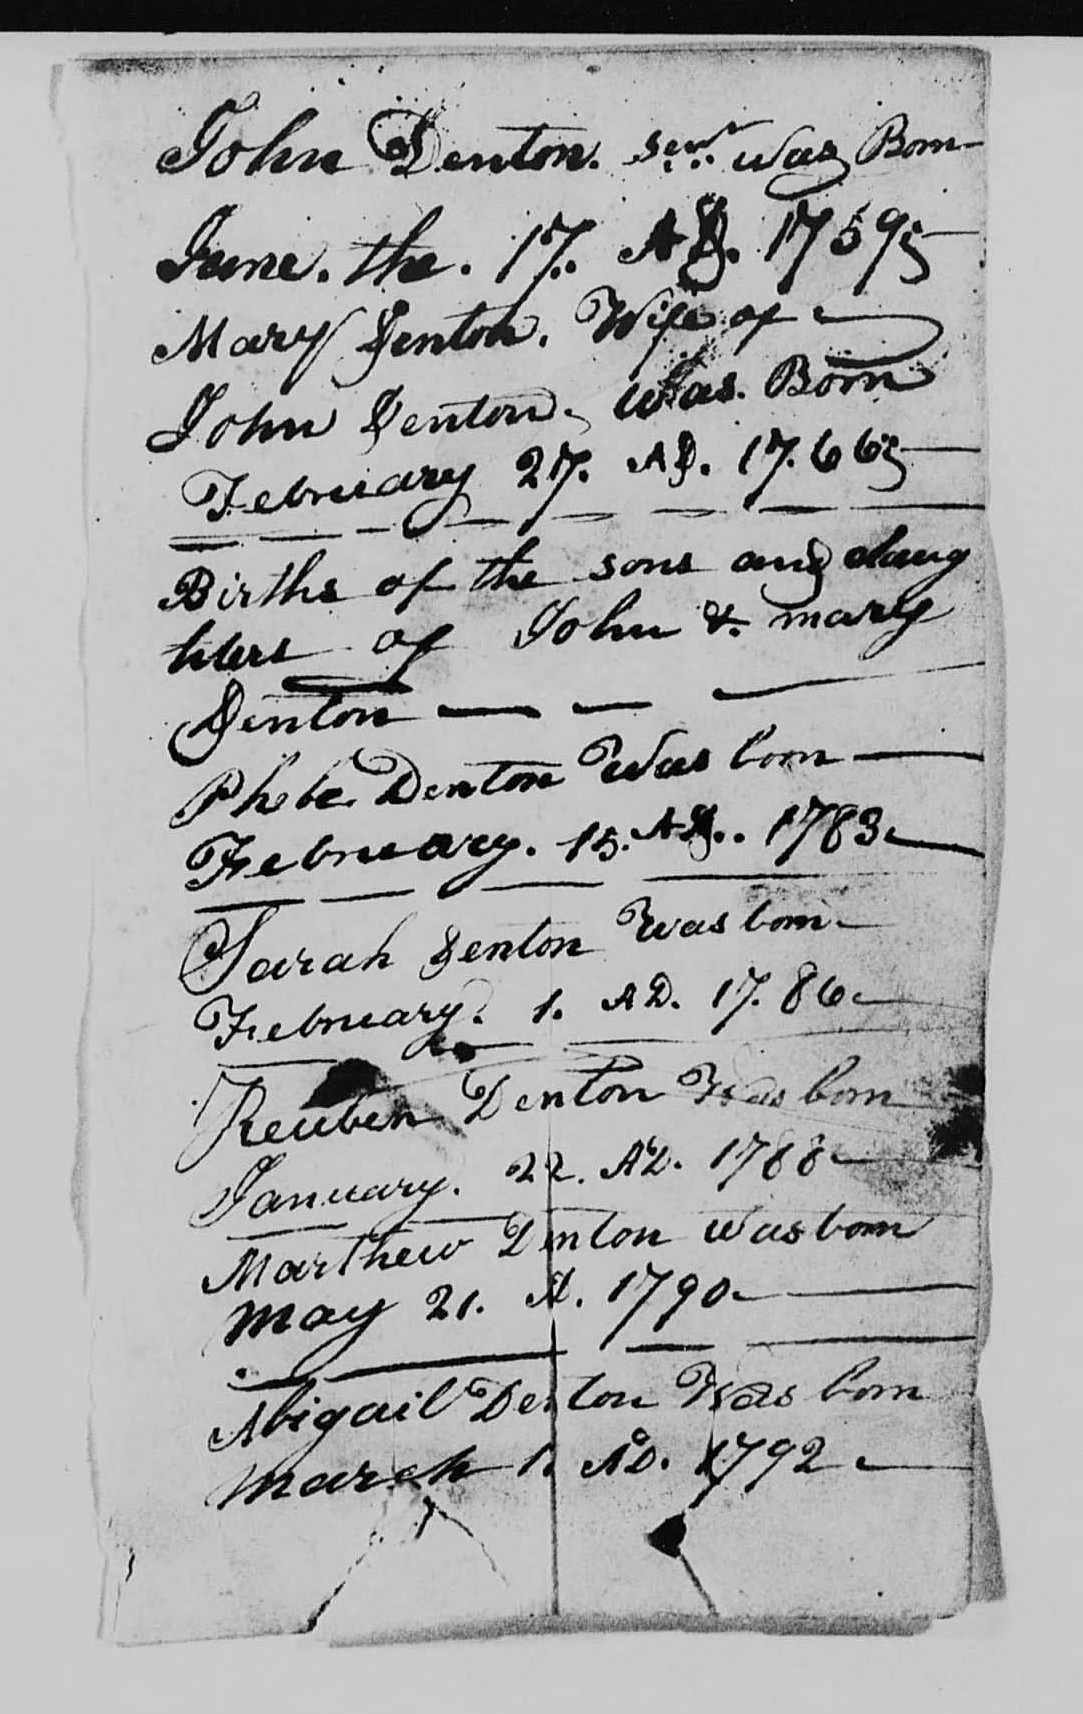 John Denton. Senr. was Born
June. the. 17. AD. 1759;
Mary Denton. Wife of
John Denton, was. Born
February 27. AD. 17.66;
Births of the sons and daug
hters of John & mary
Denton
Phebe Denton Was born
February. 15. AD.. 1783
Sarah Denton Was born
February. 1. AD. 17.86
Reuben Denton Was born
January. 22. AD. 1788
Marthew Denton was born
may 21. A. 1790
Abigail Denton Was born
march 1. AD. 1792